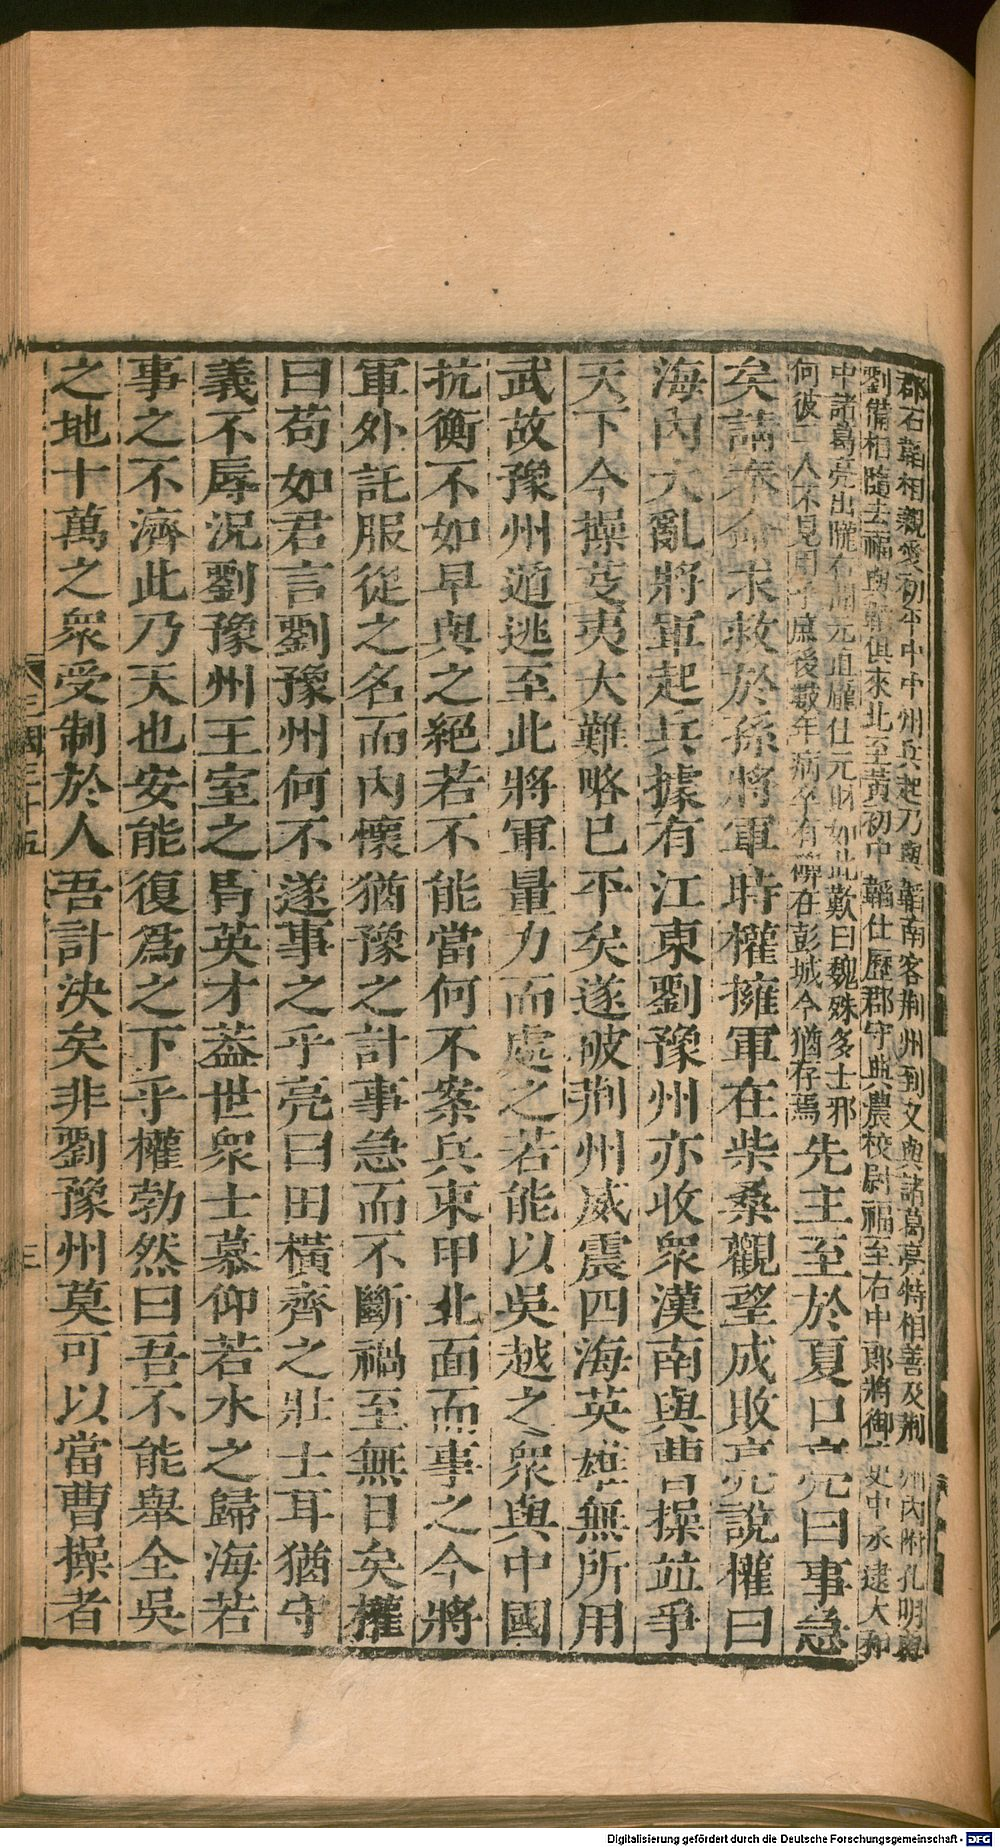 郡石韜相親愛初平中中州兵起乃與韜南客荆州到又與諸葛亮特相善及荆州內附孔明與
劉備相隨去福與韜俱來北至黃初中韜仕歷郡守典農校尉福至右中郎將御史中丞逮大和
中諸葛亮出隴右聞元直廣仕元財如此歎曰魏殊多士邪
何彼二人不見用乎庶後數年病卒有碑在彭城今猶存焉
先主至於夏口亮曰事急
矣請奉命求救於孫將軍時權擁軍在柴桑觀望成敗亮說權曰
海內大亂將軍起兵據有江東劉豫州亦收衆漢南與曹操並爭
天下今操芟夷大難略已平矣遂破荆州威震四海英雄無所用
武故豫州遁逃至此將軍量力而處之若能以吳越之衆與中國
抗衡不如早與之絕若不能當何不案兵束甲北面而事之今將
軍外託服從之名而內懷猶豫之計事急而不斷禍至無日矣權
曰苟如君言劉豫州何不遂事之乎亮曰田橫齊之壯士耳猶守
義不辱況劉豫州王室之胄英才蓋世衆士慕仰若水之歸海若
事之不濟此乃天也安能復爲之下乎權勃然曰吾不能舉全吳
之地十萬之衆受制於人吾計決矣非劉豫州莫可以當曹操者
三國三十五
三
Digitalisierung gefördert durch die Deutsche Forschungsgemeinschaft - DFG